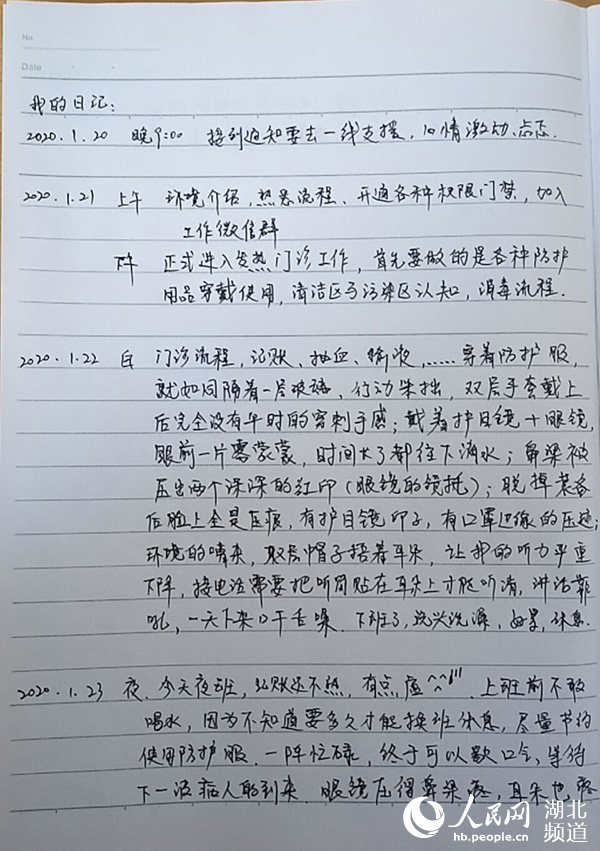 No.
Date
我的日记:
2020.1.20 晚9:00 接到通知要去一线支援,心情激动、忐忑.
2020.1.21 上午 环境介绍,熟悉流程、开通各种权限门禁,加入
工作微信群
下午 正式进入发热门诊工作,首先要做的是各种防护
用品穿戴使用,清洁区与污染区认知,消毒流程.
2020.1.22 白 门诊流程,记账、抽血、输液,……穿着防护服,
就如同隔着一层玻璃、行动笨拙,双层手套戴上
后完全没有平时的穿刺手感;戴着护目镜+眼镜,
眼前一片雾蒙蒙,时间长了都往下滴水;鼻梁被
压出两个深深的红印(眼镜的镜托);脱掉装备
后脸上全是压痕,有护目镜印子,有口罩边缘的压迹;
环境的嘈杂,双层帽子捂着耳朵,让我的听力严重
下降,接电话需要把听筒贴在耳朵上才能听清,讲话靠
吼,一天下来口干舌噪.下班了,洗头洗澡,回家,休息.
2020.1.23 夜.今天夜班,记账还不熟,有点虚^^!!!.上班前不敢
喝水,因为不知道要多久才能换班休息,尽量节约
使用防护服.一阵忙碌,终于可以歇口气,等待
下一波病人的到来.眼镜压得鼻梁疼,耳朵也疼
人民网 湖北
频道
hb.people.cn